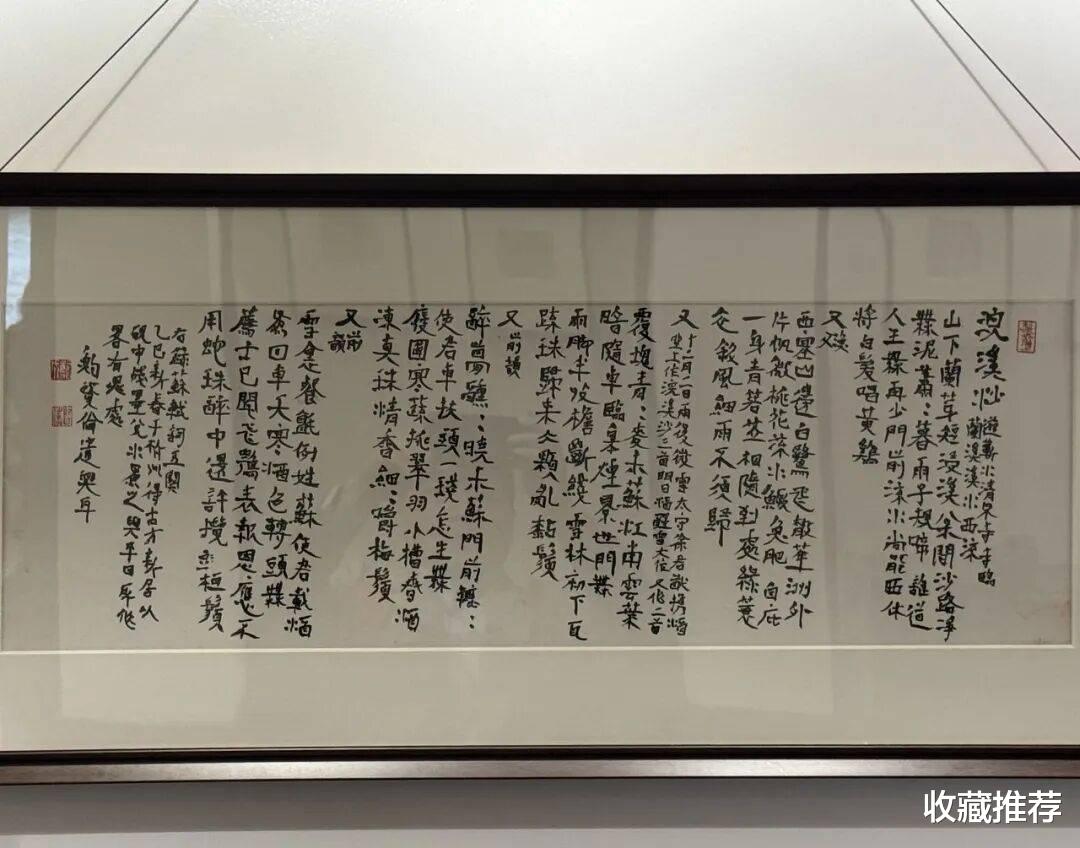 浣溪沙 遊蘄水清泉寺寺臨
蘭溪溪水西流
山下蘭芽短浸溪松間沙路淨
無泥蕭:暮雨子規啼誰道
人生無再少門前流水尚能西休
將白髮唱黃雞
又
西塞山邊白鷺飛散華洲外
片帆微桃花流水鱖魚肥自庇
一身青箬笠相隨到處綠蓑
衣斜風細雨不須歸
又 十二月二日雨後微雪太守徐君猷攜酒
坐上作浣溪沙三首明日酒醒雪大作又作二首
覆塊青:麥未蘇江南雲葉
暗隨車臨皋煙景世間無
雨腳半收檐斷綫雪林初下瓦
疎珠歸來冰顆亂黏鬚
又 前韻
醉夢醺:曉未蘇門前轆:
使君車扶頭一琖怎生無
廢圃寒蔬挑翠羽小槽春酒
凍真珠清香細:嚼梅鬚
又 前韻
雪裏餐氈例姓蘇使君載酒
為回車天寒酒色轉頭無
薦士已聞飛鶚表報恩應不
用蛇珠醉中還許攬桓鬚
右錄蘇軾詞五闋
乙巳新春于杭州得古方新居以
硯中殘墨水與平日所作
畧有處
遣興耳
收藏推荐